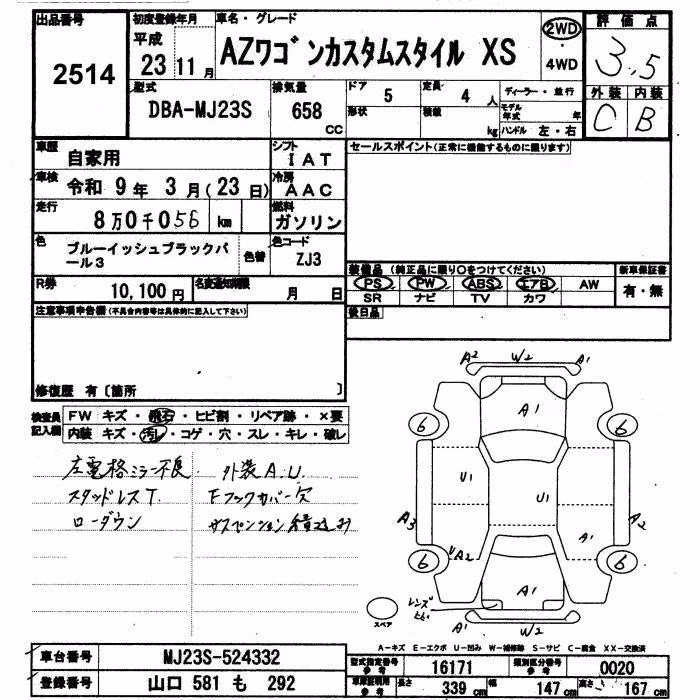 出品番号 初度登録年月 車名・グレード 2WD 評価点
2514 平成 23年 11月 AZワゴンカスタムスタイル XS ・4WD 3.5
型式 排気量 ドア 定員 ディーラー・並行 外装 内装
DBA-MJ23S 658cc 5 4人 モデル年式 年 C B
形状 積載 kg ハンドル 左・右
車歴 自家用 シフト IAT セールスポイント(正常に機能するものに限ります)
車検 令和 9年 3月(23日) 冷房 AAC
走行 8万0千056 km 燃料 ガソリン
色 ブルーイッシュブラックパール3 色替 色コード ZJ3
装備品(純正品に限り○をつけてください) 新車保証書
PS PW ABS エアB AW 有・無
SR ナビ TV カワ
R券 10,100円 名変通知期限 月 日
後日品
注意事項申告欄(不具合内容等は具体的に記入して下さい)
修復歴 有〔箇所 〕
検査員記入欄 FW キズ・飛石・ヒビ割・リペア跡・×要
内装 キズ・汚レ・コゲ・穴・スレ・キレ・破レ
左電格ミラー不良 外装A.U
スタッドレスT. Fフックカバー欠
ローダウン サスペンション
A2 W2 A1
A1
6 6
U1 U1
A3 A2
U A2 A1
6 6
A1
レンズ
スペア
A1 W2 A1
A-キズ E-エクボ U-凹み W-補修跡 S-サビ C-腐食 XX-交換済
車台番号 MJ23S-524332 型式指定番号 参考 16171 類別区分番号 参考 0020
登録番号 山口 581 も 292 車庫証明用 参考 長さ 339cm 幅 147cm 高さ 167cm